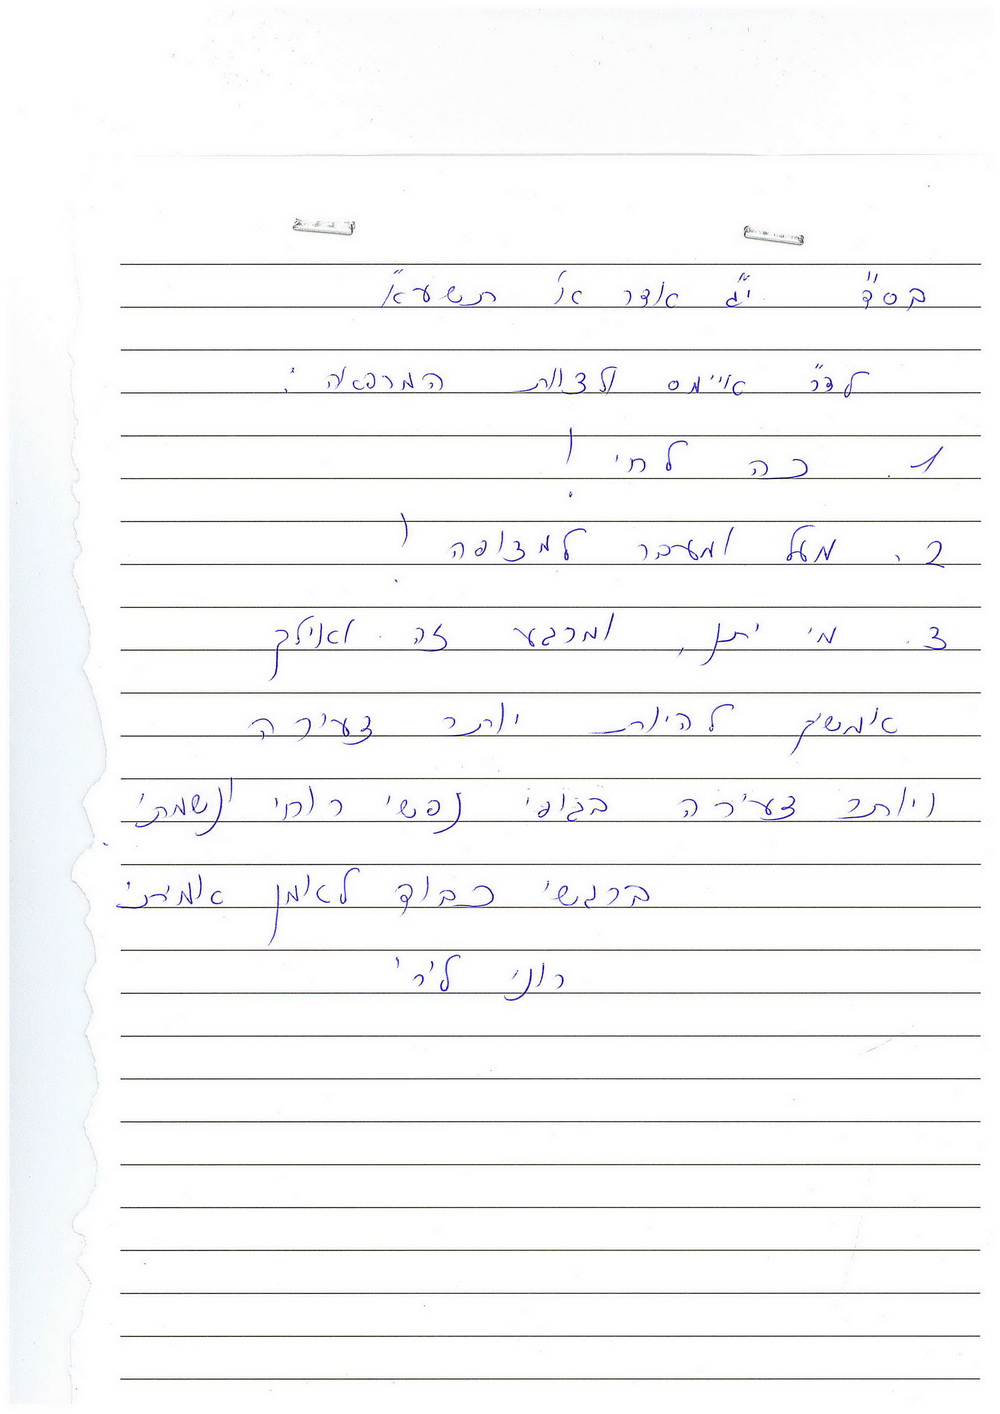 בס"ד י"ג אדר א' תשע"א
לד"ר אויימס ולצוות המרפאה:
1. כה לחי!
2. מעל ומעבר למצופה!
3. מי יתן, ומרגע זה ואילך
אמשיך להיות יותר צעירה
ויותר צעירה בגופי נפשי רוחי ונשמתי
ברגשי כבוד לאומן אמיתי
רוני לירי